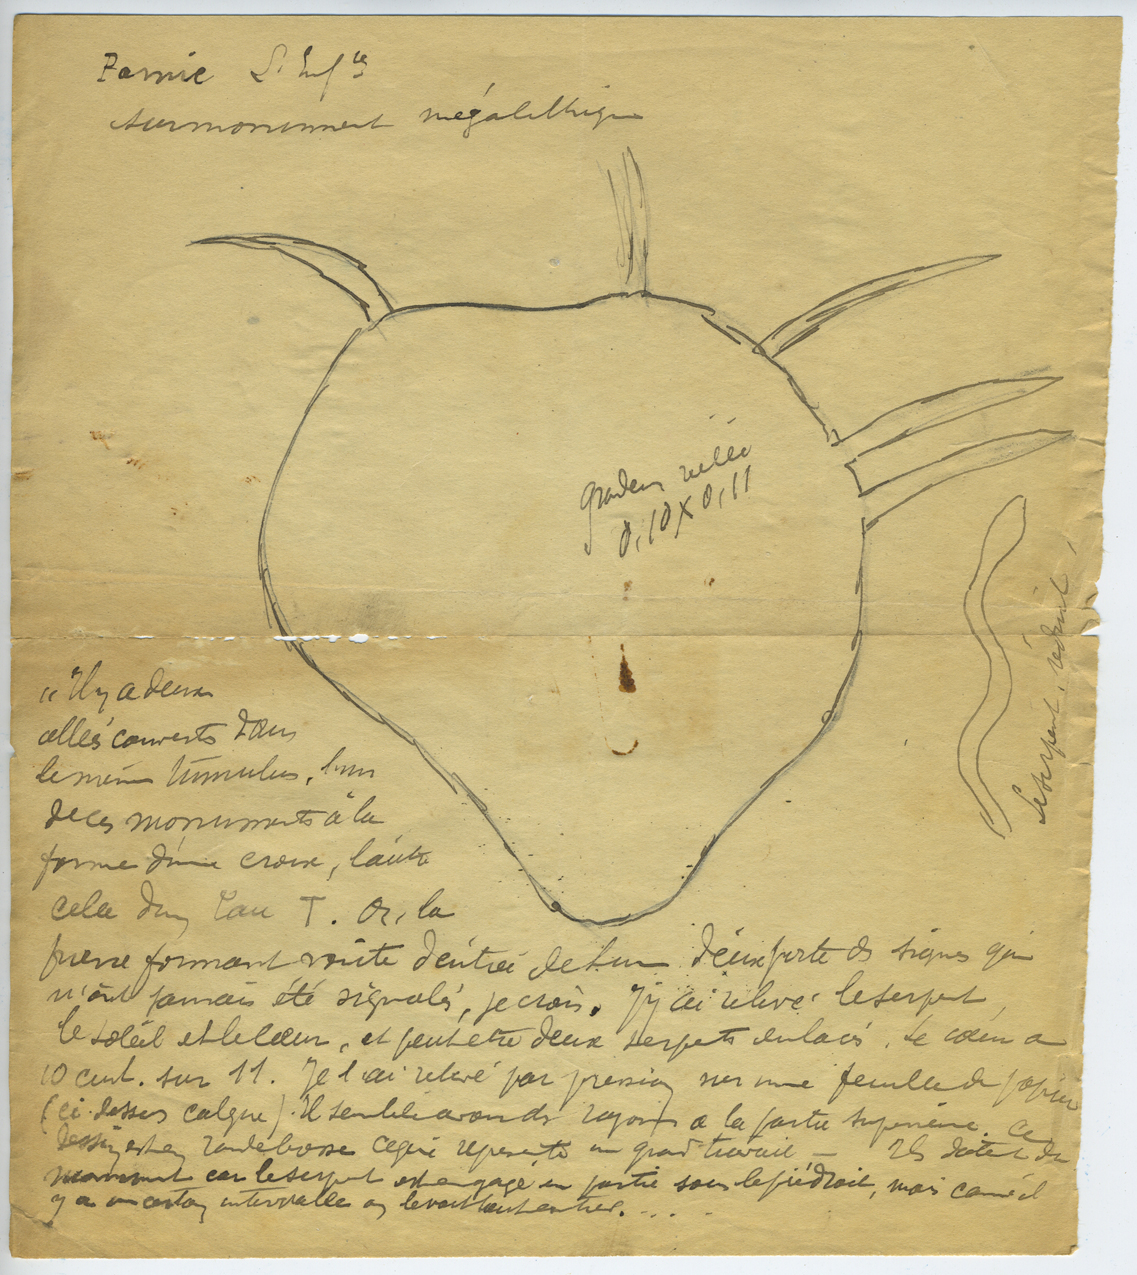 Pornic
sur monument mégalithique
grandeur réelle
0,10 X 0,11
Le serpent, réduit
"Il y a deux
allés couverts dans
le même tumulus, l'un
de ces monuments à la
forme d'une croix, l'autre
celle d'un Tau T. Or, la
pierre formant voûte d'entrée de l'un d'eux porte des signes qui
n'ont jamais été signalés, je crois. J'y ai relevé le serpent
le soleil et le cœur, et peut etre deux serpents enlacés. Le cœur a
10 cent. sur 11. Je l'ai relevé par pression sur une feuille de papier
(ci-dessus calque). Il semble avoir des rayons à la partie supérieure. Ce
dessin est en ronde bosse ce qui représente un grand travail — Ils datent du
monument car le serpent est engagé en partie sous le piédroit, mais comme il
y a un certain intervalle on le voit tout entier. . . .